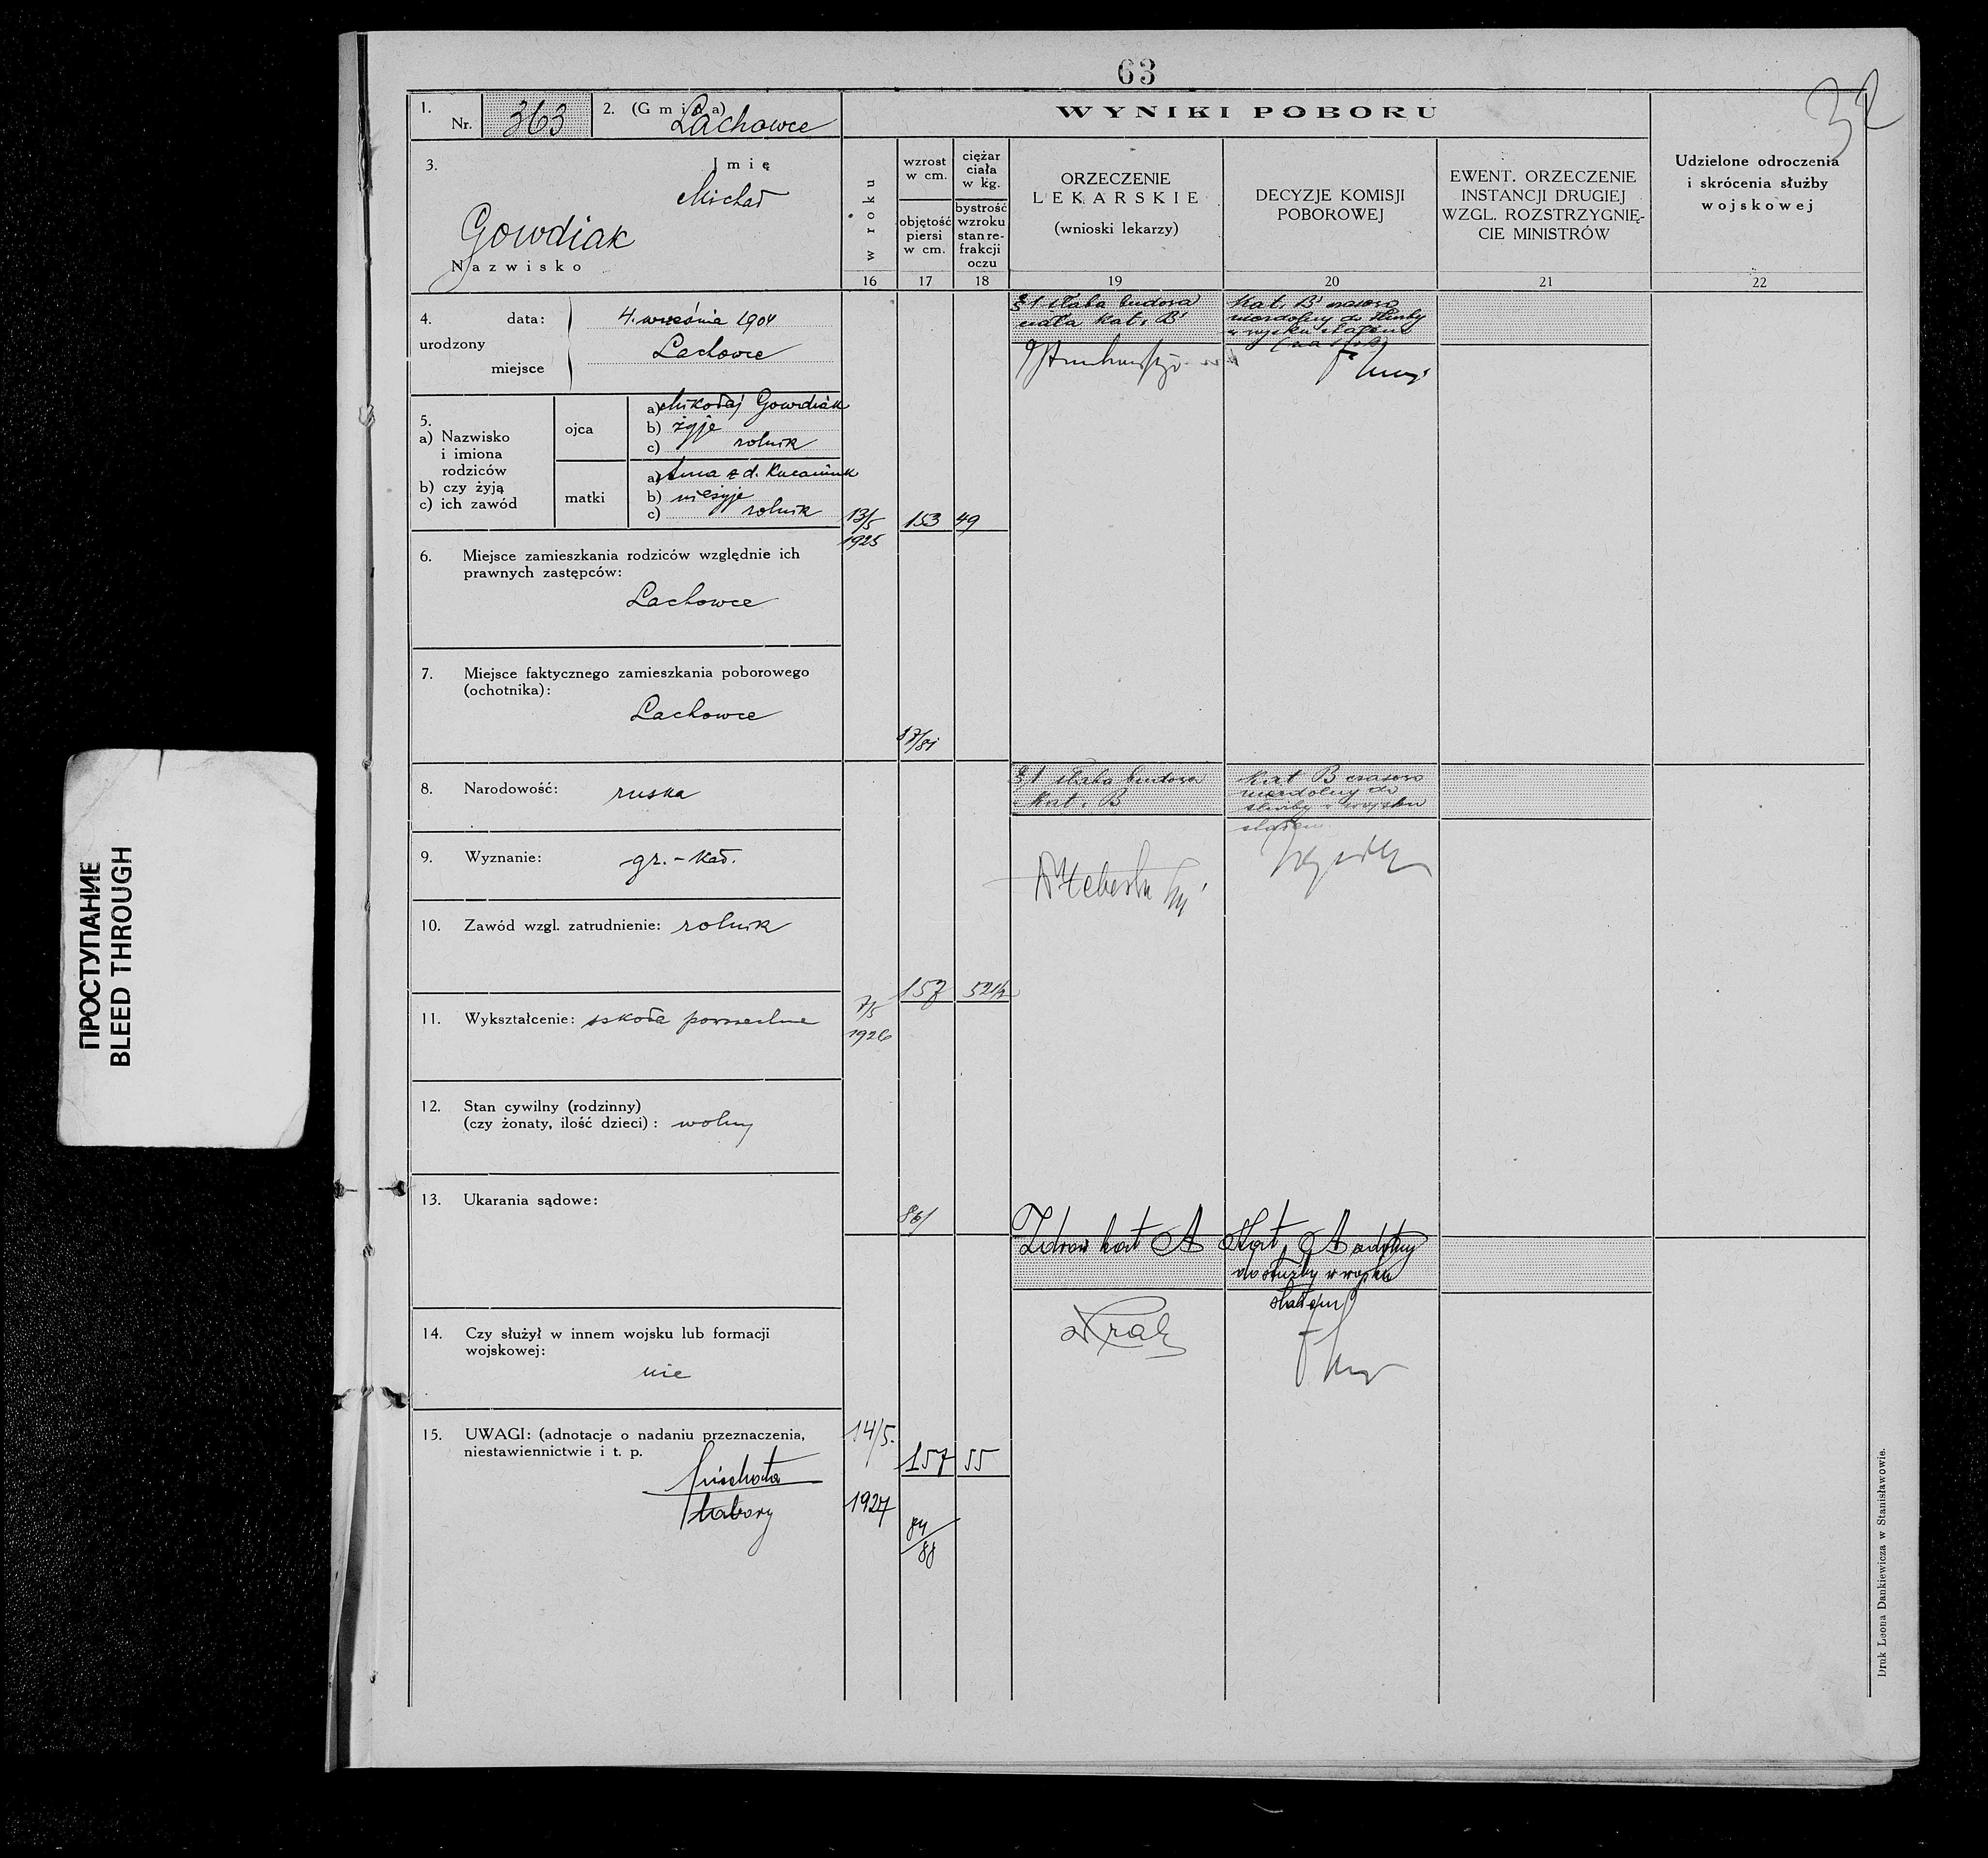 63
32
1.
Nr. 363
2. (Gmina) Lachowce
WYNIKI POBORU
3.
Imię
Michał
Gowdiak
Nazwisko
w roku
wzrost
w cm.
objętość
piersi
w cm.
ciężar
ciała
w kg.
bystrość
wzroku
stan re-
frakcji
oczu
ORZECZENIE
LEKARSKIE
(wnioski lekarzy)
DECYZJE KOMISJI
POBOROWEJ
EWENT. ORZECZENIE
INSTANCJI DRUGIEJ
WZGL. ROZSTRZYGNIĘ-
CIE MINISTRÓW
Udzielone odroczenia
i skrócenia służby
wojskowej
16 17 18 19 20 21 22
4.
urodzony
data: 4. września 1904
miejsce Lachowce
§1 słaba budowa
ciała Kat. B
Kat. B czasowo
niezdolny do służby
w wojsku stałem
5.
a) Nazwisko
i imiona
rodziców
b) czy żyją
c) ich zawód
ojca
a) Mikołaj Gowdiak
b) żyje
c) rolnik
matki
a) Anna z d.
b) nieżyje
c) rolnik
13/5
1925
153 49
6. Miejsce zamieszkania rodziców względnie ich
prawnych zastępców:
Lachowce
7. Miejsce faktycznego zamieszkania poborowego
(ochotnika):
Lachowce
8. Narodowość: ruska
§1 słaba budowa
Kat. B
Kat B czasowo
niezdolny do
służby w wojsku
stałem
9. Wyznanie: gr.-kat.
10. Zawód wzgl. zatrudnienie: rolnik
157 52 1/2
7/5
1926
11. Wykształcenie: szkoła powszechna
12. Stan cywilny (rodzinny)
(czy żonaty, ilość dzieci): wolny
13. Ukarania sądowe:
86/
Zdrów kat A
Kat. A zdolny
do służby w wojsku
stałem
14. Czy służył w innem wojsku lub formacji
wojskowej:
nie
15. UWAGI: (adnotacje o nadaniu przeznaczenia,
niestawiennictwie i t. p.
piechota
tabory
14/5.
1927
157 55
84/88
Druk Leona Dankiewicza w Stanisławowie.
ПРОСТУПАНИЕ
BLEED THROUGH